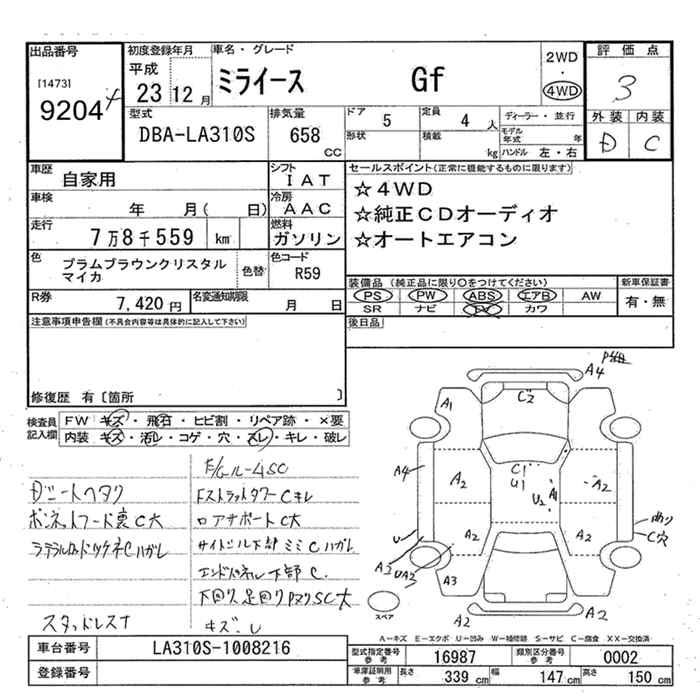 出品番号
[1473]
9204
初度登録年月
平成
23 12 月
車名・グレード
ミライース Gf
2WD
・
4WD
評価点
3
外装 内装
D C
型式
DBA-LA310S
排気量
658 CC
ドア 5
定員 4 人
形状
積載 kg
ディーラー・並行
モデル年式 年
ハンドル 左・右
車歴
自家用
シフト
IAT
車検
年 月( 日)
冷房
AAC
走行
7万8千559 km
燃料
ガソリン
色
プラムブラウンクリスタル
マイカ
色替
色コード
R59
R券
7,420 円
名変通知期限
月 日
セールスポイント(正常に機能するものに限ります)
☆4WD
☆純正CDオーディオ
☆オートエアコン
装備品 (純正品に限り○をつけてください)
PS PW ABS エアB AW
SR ナビ TV カワ
新車保証書
有・無
後日品
注意事項申告欄(不具合内容等は具体的に記入して下さい)
修復歴 有〔箇所 〕
検査員
記入欄
FW キズ・飛石・ヒビ割・リペア跡・×要
内装 キズ・汚レ・コゲ・穴・スレ・キレ・破レ
Dシートヘタク
Fストラットタワー C キレ
ボンネットフード裏 C大
ロアナポート C大
サイドシル下部 ミミ C ハガレ
エンドパネル下部 C.
下回り足回り
SC大
スタッドレス
キズ.U
A4
A1
C2
A4
A2
C1
U1
A1
U2
A2
あり
C穴
U
A2
A2
A3
UA2
A3
A2
A2
スペア
A-キズ E-エクボ U-凹み W-補修跡 S-サビ C-腐食 XX-交換済
車台番号
LA310S-1008216
登録番号
型式指定番号
参考
16987
類別区分番号
参考
0002
車庫証明用
参考
長さ 339 cm
幅 147 cm
高さ 150 cm